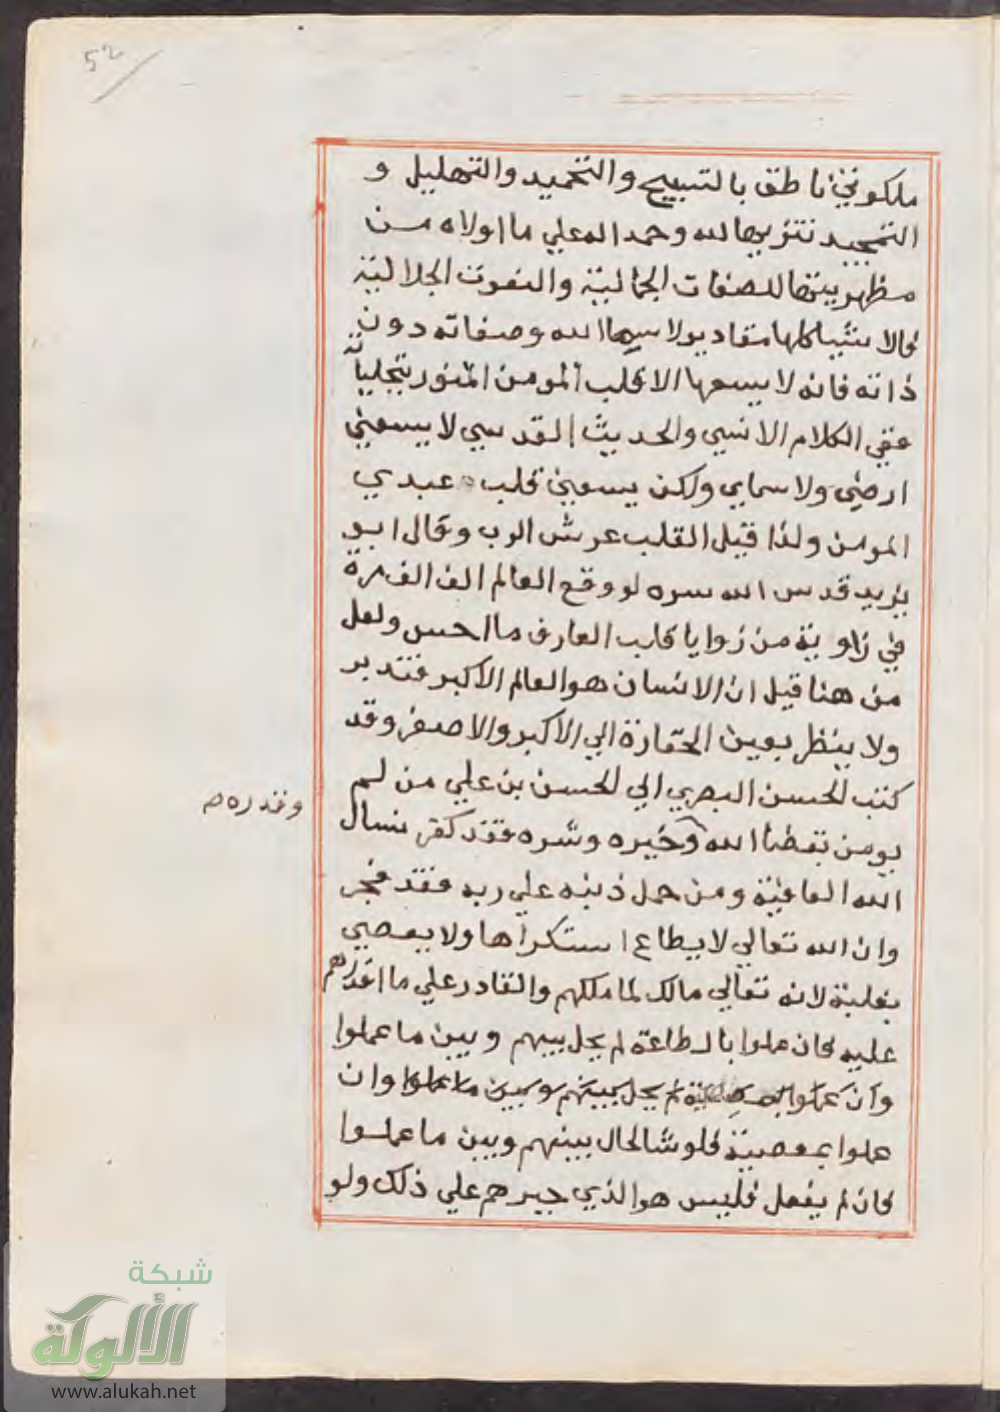 52
ملكوتي ناطق بالتسبيح والتحميد والتهليل و
التمجيد تنزيها لله وحمدا له علي ما اولاه من
مظهريتها للصفات الجمالية والنعوت الجلالية
فالاشياكلها مقاد يولاسيما الله وصفاته دون
ذاته فانه لا يسعها الا قلب المومن المنور بتجلياته
ففي الكلام الانسي والحديث القدسي لا يسعني
ارضي ولا سماىي ولكن يسعني قلب عبدي
المومن ولذا قيل القلب عرش الرب وقال ابو
يزيد قدس الله سره لو وقع العالم الف الف مرة
في زاوية من زوايا قلب العارف ما احس ولعل
من هنا قيل ان الانسان هو العالم الاكبر فتدبر
ولا ينظر بعين الحقارة الي الاكبر والاصغر وقد
كتب الحسن البصري الي الحسن بن علي من لم
يومن بقضا الله وخيره وشره فقد كفر نسال
وقدره صح
الله العافية ومن حمل ذنبه علي ربه فقد فجر
وان الله تعالي لا يطاع استكراها ولا يعصي
بغلبة لانه تعالي مالك لما ملكهم والقادر علي ما اقدرهم
عليه فان عملوا بالطاعة لم يحل بينهم وبين ما عملوا
وان عملوا لم يحل بينهم وبين ما عملوا وان
عملوا بمعصية فلو شا لحال بينهم وبين ما عملوا
فان لم يفعل فليس هو الذي جبرهم علي ذلك ولو
شبكة
الألوكة
www.alukah.net